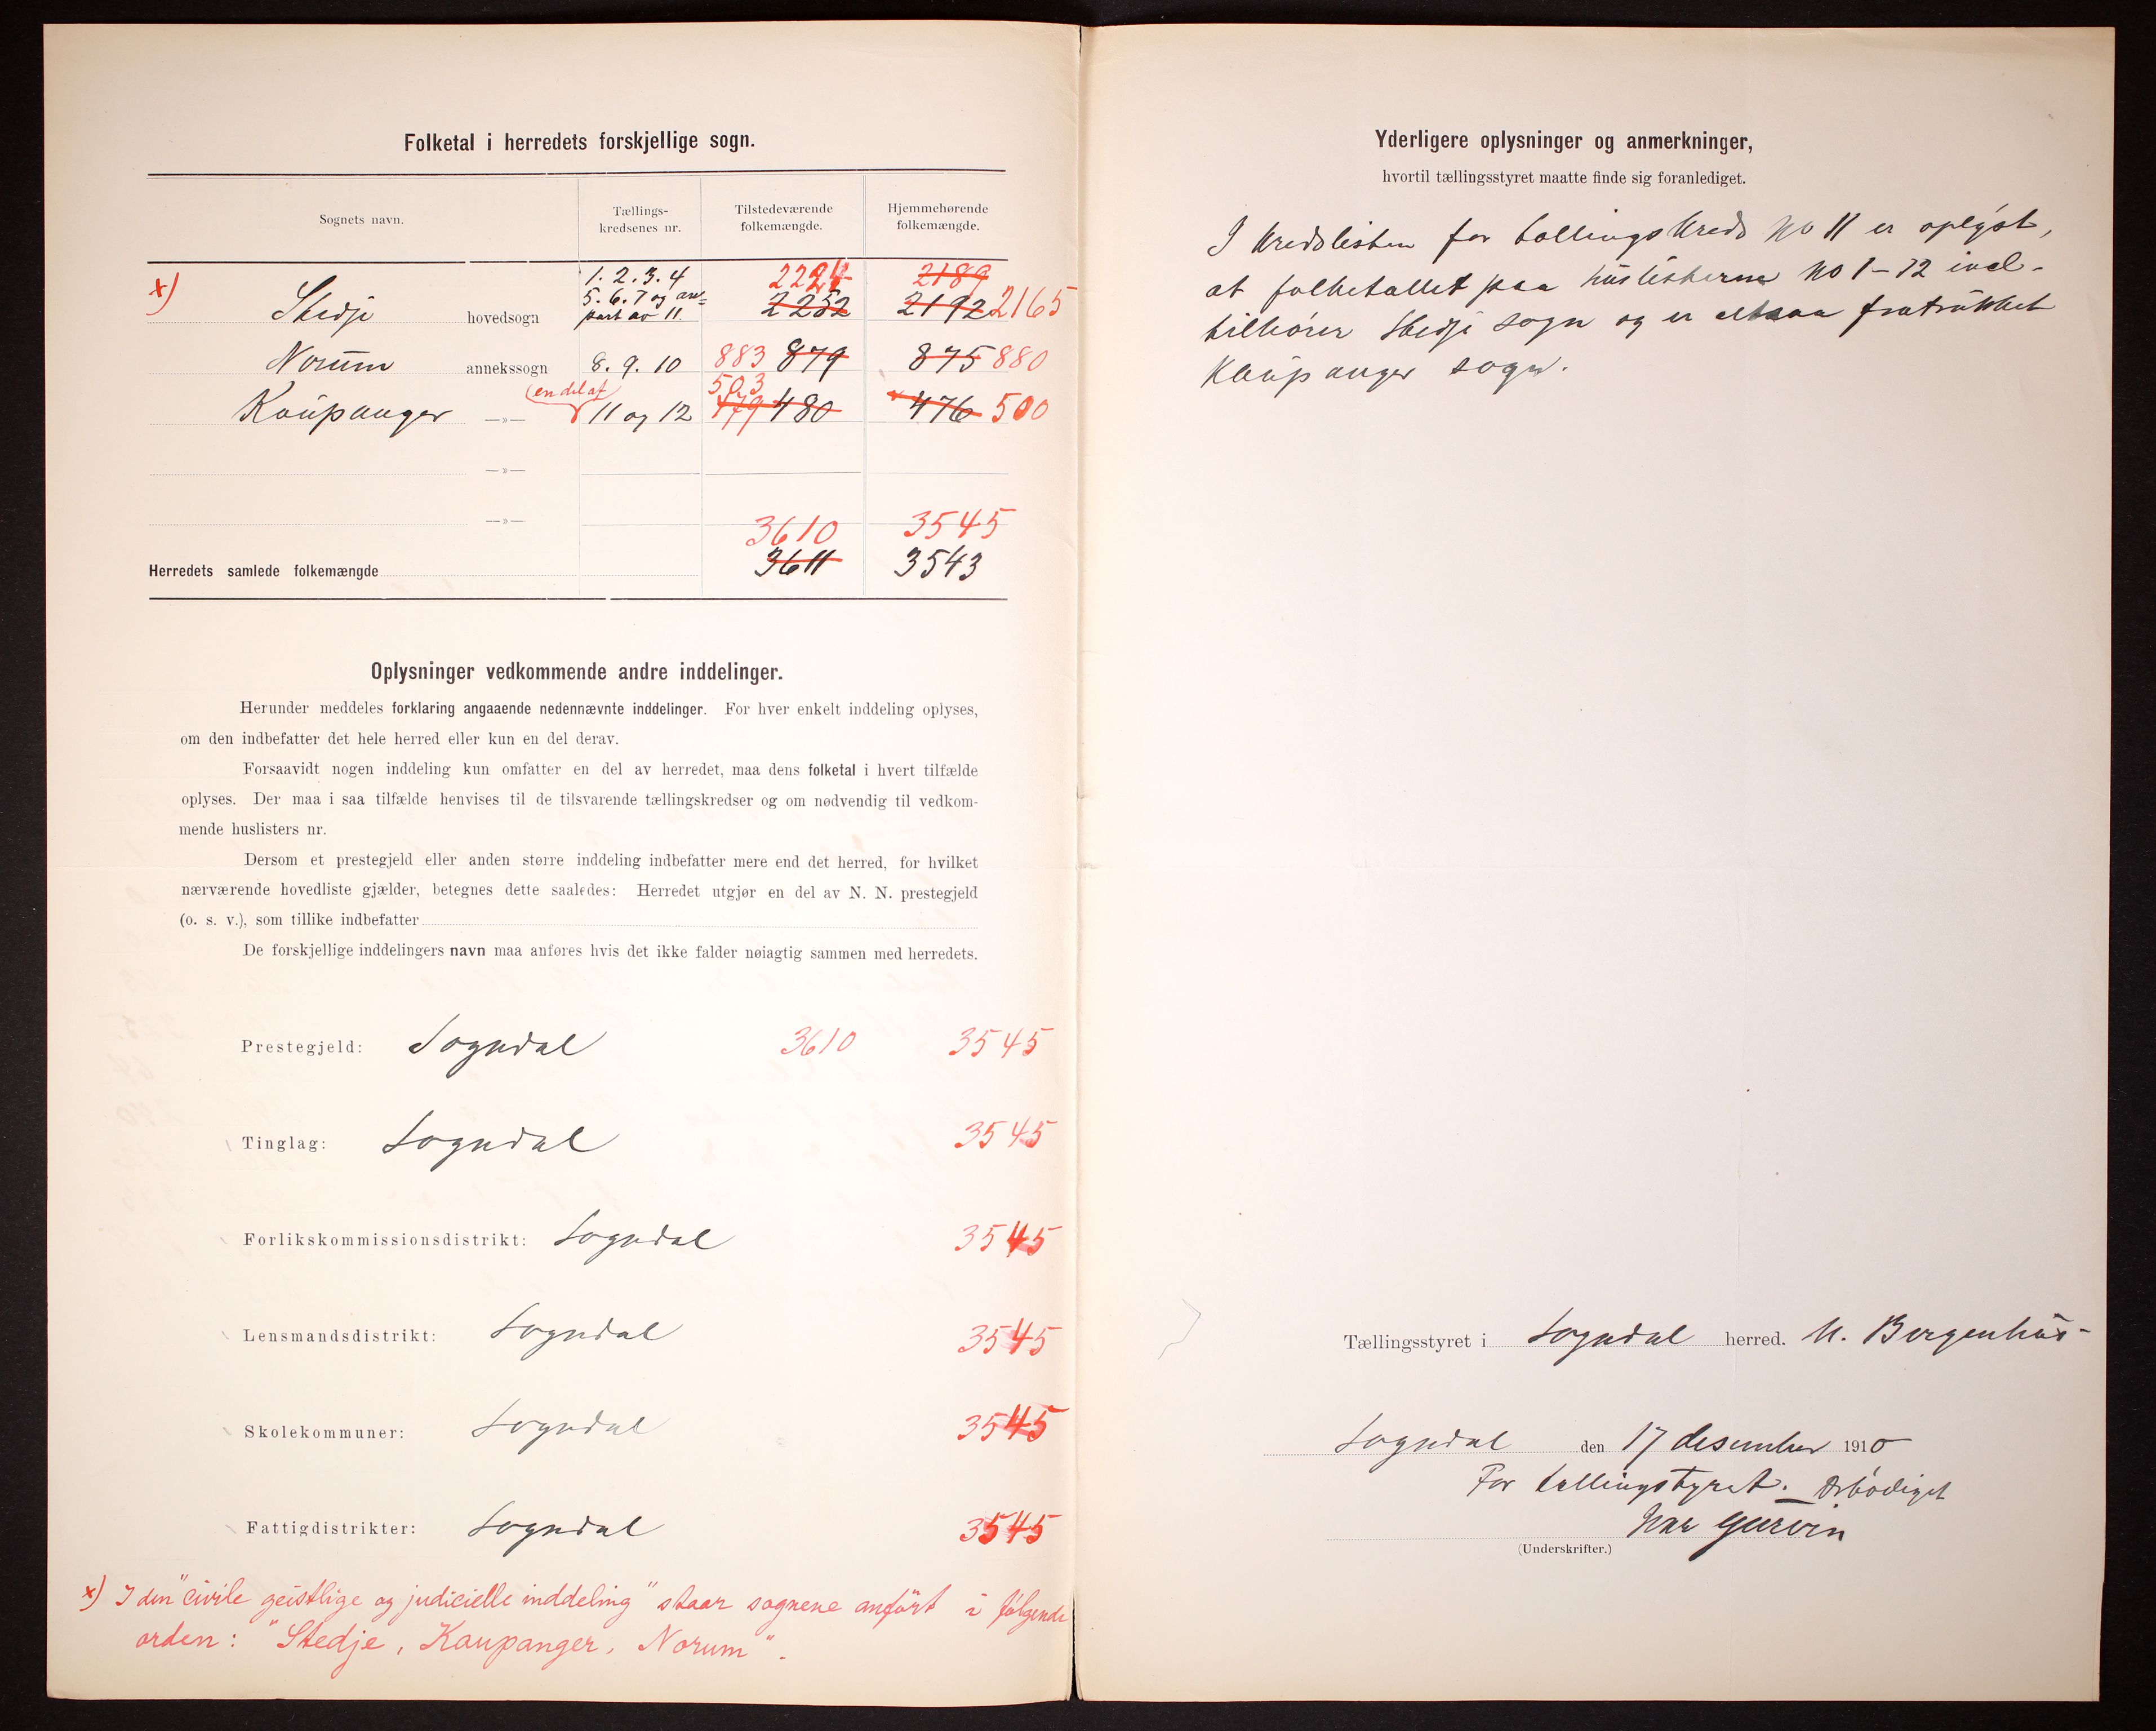 Folketal i herredets forskjellige sogn.
Sognets navn.
Tællings-
kredsenes nr.
Tilstedeværende
folkemængde.
Hjemmehørende
folkemængde.
x) Stedje hovedsogn
1. 2. 3. 4
5. 6. 7 og en
part av 11.
2224
2252
2189
2192 2165
Norum annekssogn 8. 9. 10 883 879 875 880
(en del af
503
Kaupanger —»— 11 og 12 479 480 476 500
—»—
—»—
3610 3545
Herredets samlede folkemængde 3611 3543
Oplysninger vedkommende andre inddelinger.
Herunder meddeles forklaring angaaende nedennævnte inddelinger. For hver enkelt inddeling oplyses,
om den indbefatter det hele herred eller kun en del derav.
Forsaavidt nogen inddeling kun omfatter en del av herredet, maa dens folketal i hvert tilfælde
oplyses. Der maa i saa tilfælde henvises til de tilsvarende tællingskredser og om nødvendig til vedkom-
mende huslisters nr.
Dersom et prestegjeld eller anden større inddeling indbefatter mere end det herred, for hvilket
nærværende hovedliste gjælder, betegnes dette saaledes: Herredet utgjør en del av N. N. prestegjeld
(o. s. v.), som tillike indbefatter
De forskjellige inddelingers navn maa anføres hvis det ikke falder nøiagtig sammen med herredets.
Prestegjeld: Sogndal 3610 3545
Tinglag: Sogndal 3545
Forlikskommissionsdistrikt: Sogndal 3545
Lensmandsdistrikt: Sogndal 3545
Skolekommuner: Sogndal 3545
Fattigdistrikter: Sogndal 3545
x) I den "civile geistlige og judicielle inddeling" staar sognene anført i følgende
orden: "Stedje, Kaupanger, Norum".
Yderligere oplysninger og anmerkninger,
hvortil tællingsstyret maatte finde sig foranlediget.
I kredslisten for tællingskreds No 11 er oplyst,
at folketallet paa huslisterne No 1-12 incl.
tilhører Stedje sogn og er altsaa fratrukket
Kaupanger sogn.
Tællingsstyret i Sogndal herred. N. Bergenhus-
Sogndal den 17 desember 1910
For tællingstyret. Ærbødigst
Gurvin
(Underskrifter.)